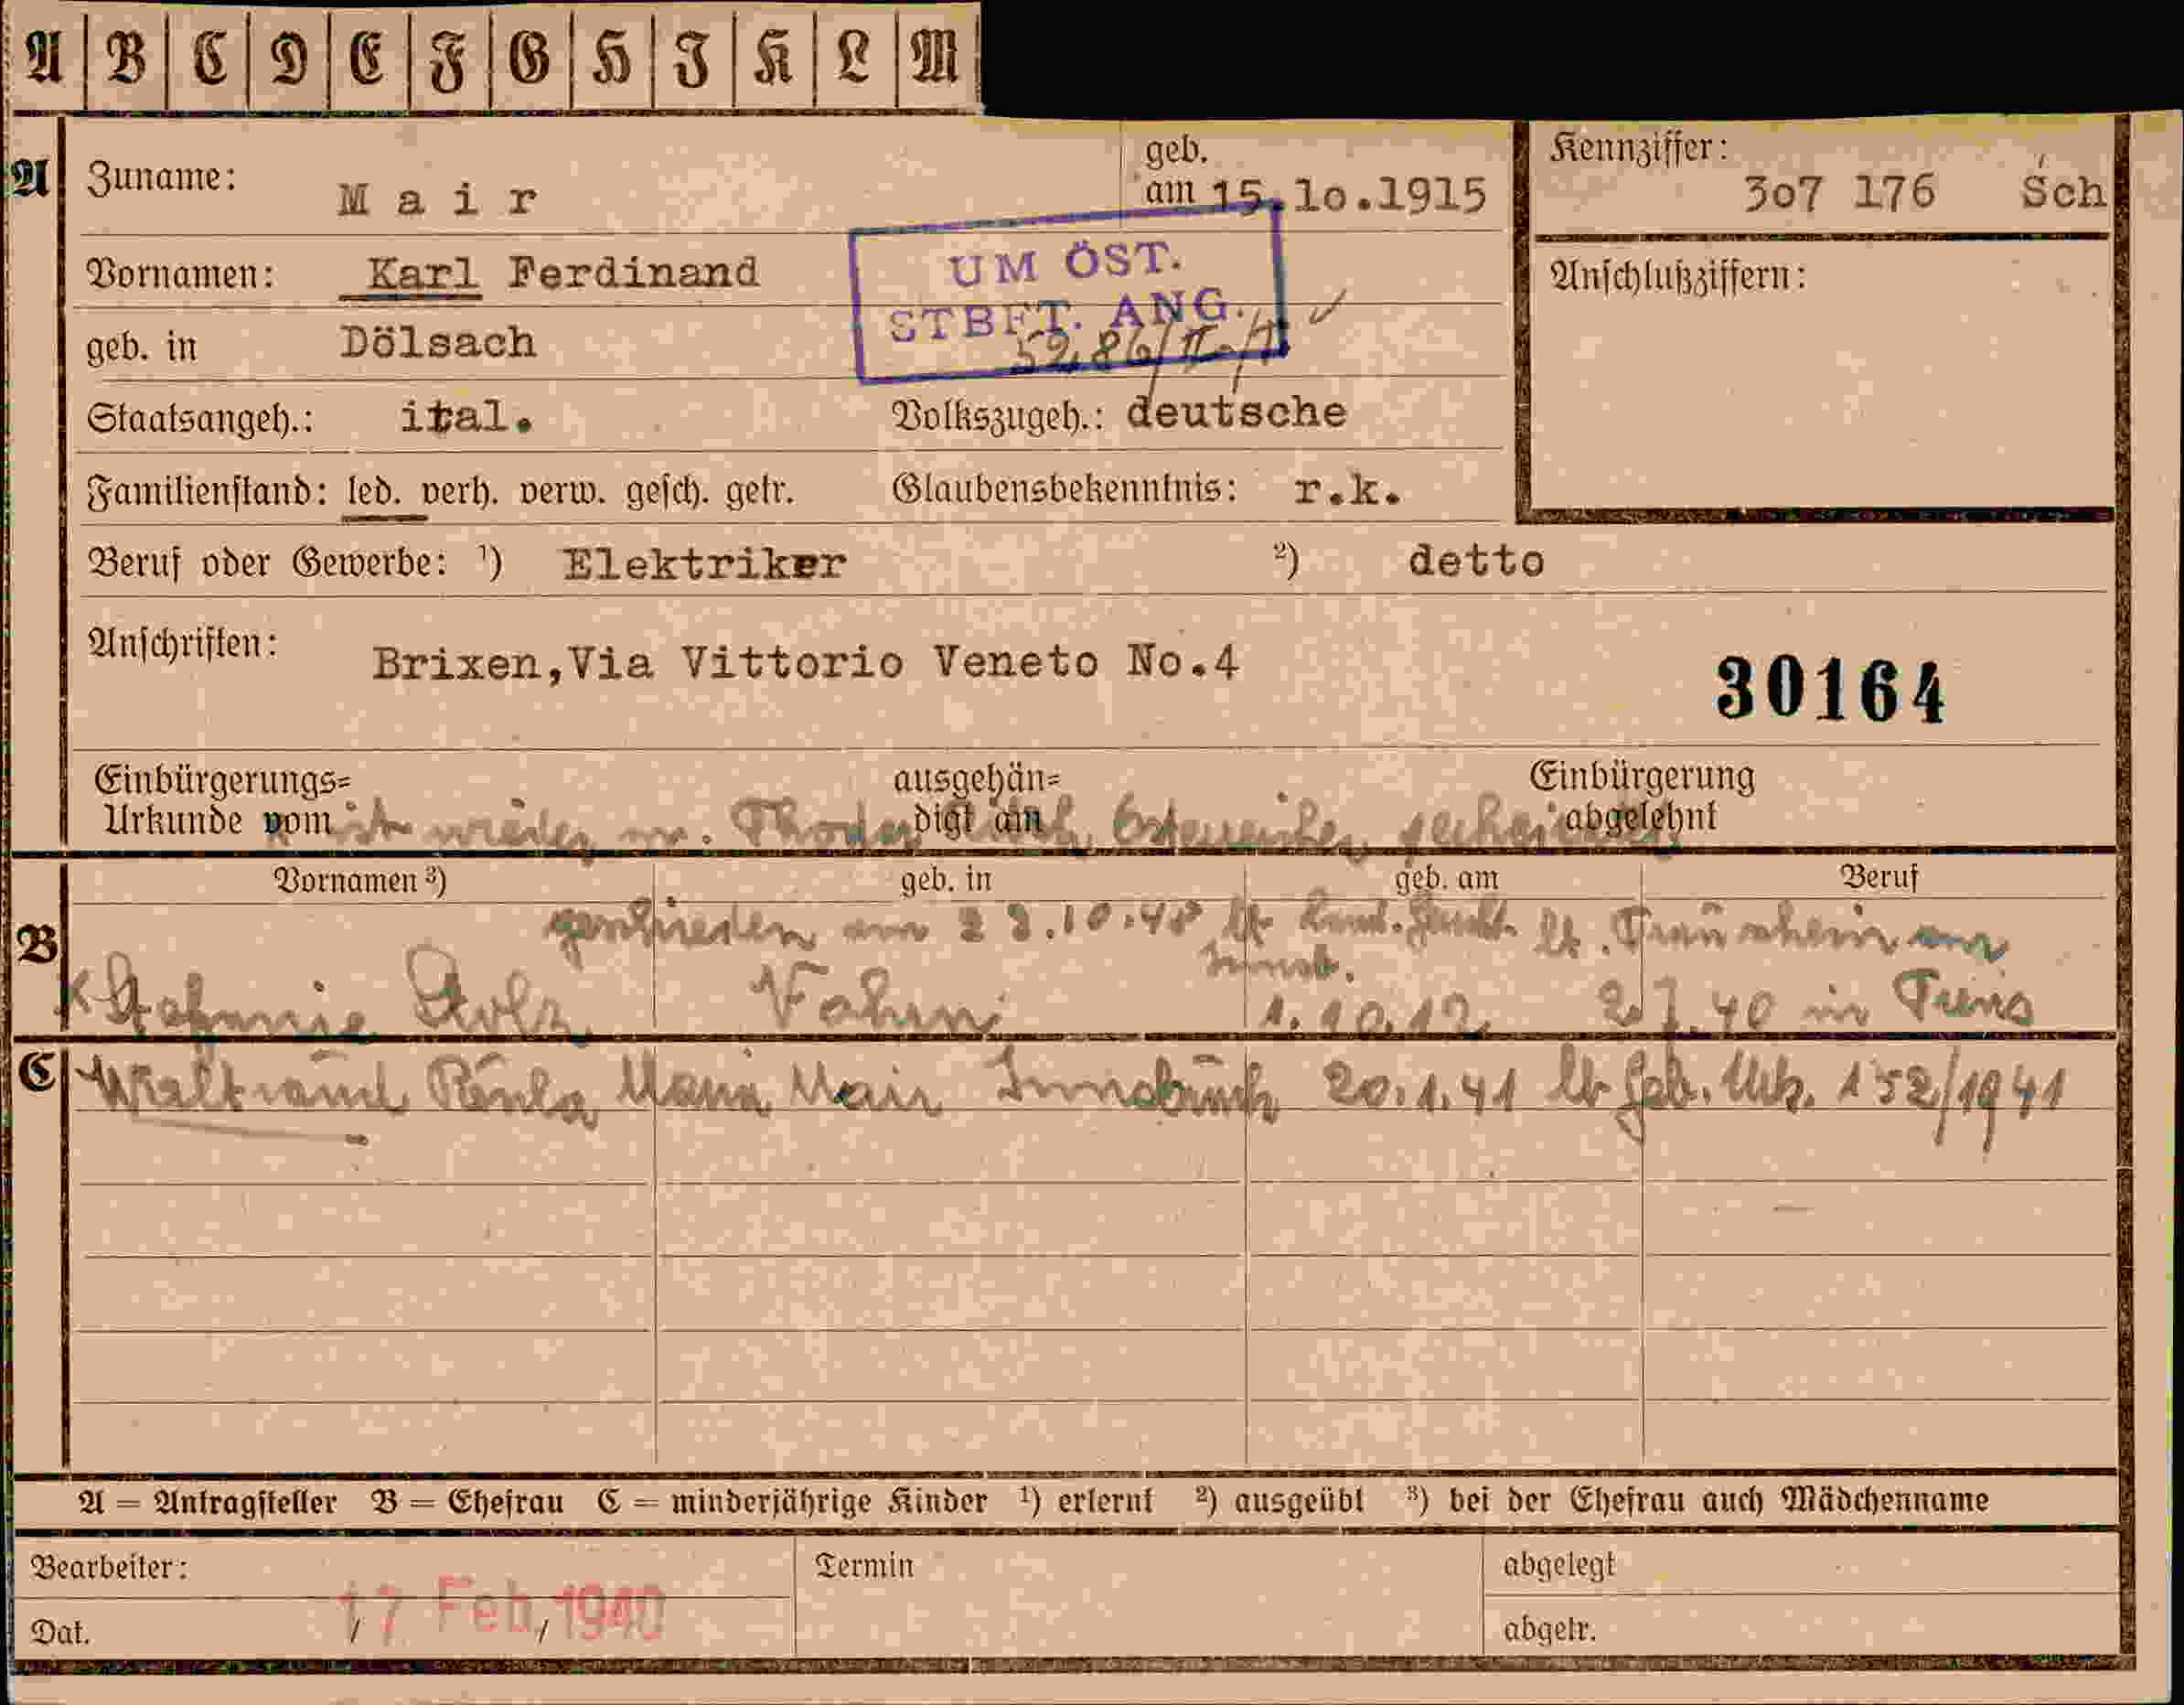 A B C D E F G H J K L M
A Zuname: Mair geb. am 15.10.1915 Kennziffer: 307 176 Sch
Vornamen: Karl Ferdinand UM ÖST. Anschlußziffern:
STBFT. ANG.
geb. in Dölsach
Staatsangeh.: ital. Volkszugeh.: deutsche
Familienstand: led. verh. verw. gesch. getr. Glaubensbekenntnis: r.k.
Beruf oder Gewerbe: ¹) Elektriker ²) detto
Anschriften: Brixen,Via Vittorio Veneto No.4
30164
Einbürgerungs= ausgehän= Einbürgerung
Urkunde vom digt am abgelehnt
ist wieder
Vornamen ³) geb. in geb. am Beruf
B geschieden am 23.10.48 lt. lt. Trauschein am
Stefanie Vahrn 1.10.12 2.7.40 in
C Waltraud Paula Maria Mair Innsbruck 20.1.41 lt. Geb. Urk. 152/1941
A = Antragsteller B = Ehefrau C = minderjährige Kinder ¹) erlernt ²) ausgeübt ³) bei der Ehefrau auch Mädchenname
Bearbeiter: Termin abgelegt
Dat. 17 Feb. 1940 abgetr.